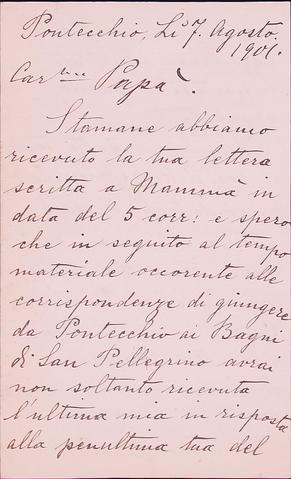 Pontecchio, Li 7. Agosto.
1901.
Car.mo Papà.
Stamane abbiamo
ricevuto la tua lettera
scritta a Mammà in
data del 5 corr: e spero
che in seguito al tempo
materiale occorente alle
corrispondenze di giungere
da Pontecchio ai Bagni
di San Pellegrino avrai
non soltanto ricevuta
l'ultima mia in risposta
alla penultima tua del